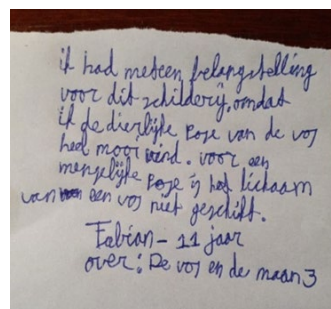 ik had meteen belangstelling
voor dit schilderij, omdat
ik de dierlijke pose van de vos
heel mooi vind. voor een
menselijke pose is het lichaam
van een vos niet geschikt.
Fabian - 11 jaar
over: De vos en de maan 3